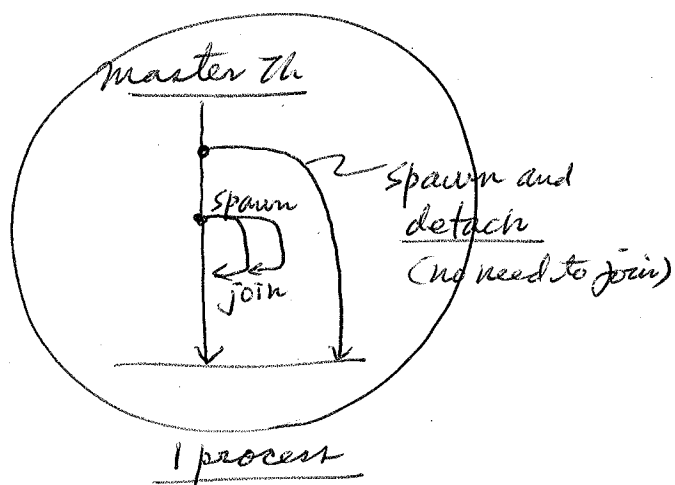 master Th
spawn and
detach
(no need to join)
spawn
join
1 process